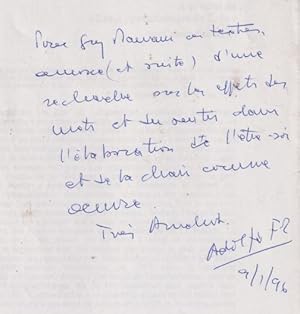 Pour Guy
amorce (et suite) d'une
recherche sur les effets des
mots et des ventes dans
l'élaboration de l'être-soi
et de la chair comme
oeuvre.
Très Amical.
Adolfo F
9/1/96